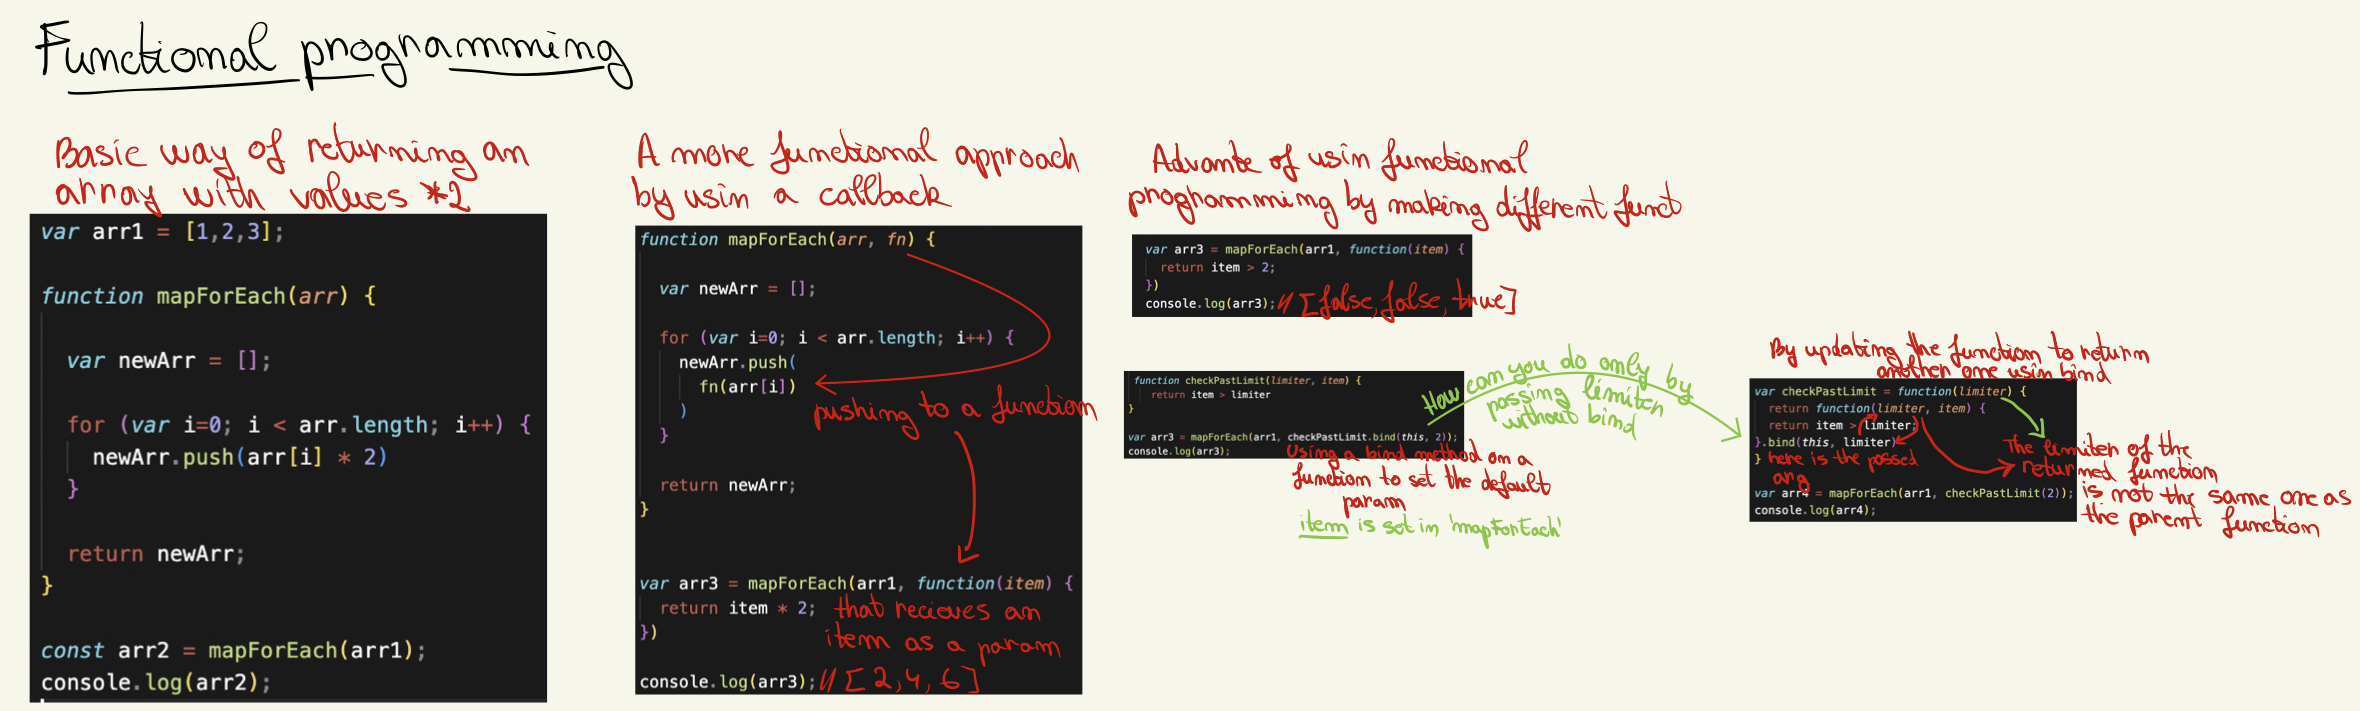 Functional programming
Basic way of returning an
array with values *2
var arr1 = [1,2,3];
function mapForEach(arr) {
var newArr = [];
for (var i=0; i < arr.length; i++) {
newArr.push(arr[i] * 2)
}
return newArr;
}
const arr2 = mapForEach(arr1);
console.log(arr2);
A more functional approach
by usin a callback
function mapForEach(arr, fn) {
var newArr = [];
for (var i=0; i < arr.length; i++) {
newArr.push(
fn(arr[i])
)
pushing to a function
}
return newArr;
}
var arr3 = mapForEach(arr1, function(item) {
return item * 2; that recieves an
})
item as a param
console.log(arr3); // [2,4,6]
Advante of usin functional
programming by making different funct
var arr3 = mapForEach(arr1, function(item) {
return item > 2;
})
console.log(arr3); // [false, false, true]
function checkPastLimit(limiter, item) {
return item > limiter
}
var arr3 = mapForEach(arr1, checkPastLimit.bind(this, 2));
console.log(arr3);
Using a bind method on a
function to set the default
param
item is set in 'mapForEach'
How can you do only by
passing limiter
without bind
By updating the function to return
another one usin bind
var checkPastLimit = function(limiter) {
return function(limiter, item) {
return item > limiter;
}.bind(this, limiter)
} here is the passed
arg
var arr4 = mapForEach(arr1, checkPastLimit(2));
console.log(arr4);
The limiter of the
returned function
is not the same one as
the parent function